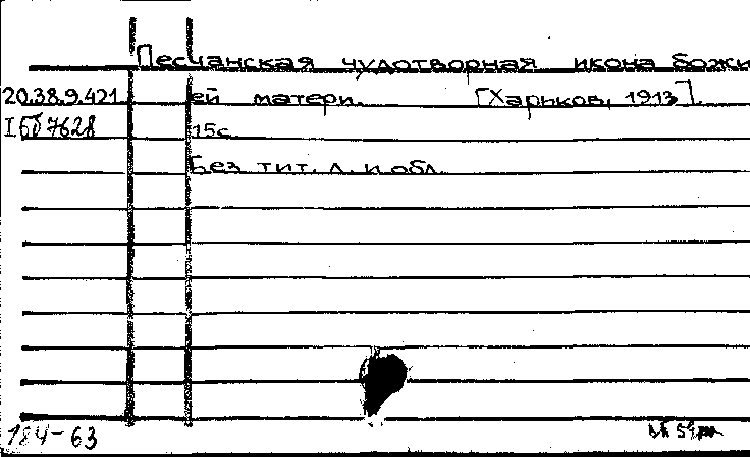 Песчанская чудотворная икона Божи
20.38.9.421 ей матери. [Харьков, 1913].
I Бб 7628 15с.
Без тит. л. и обл.
184-63